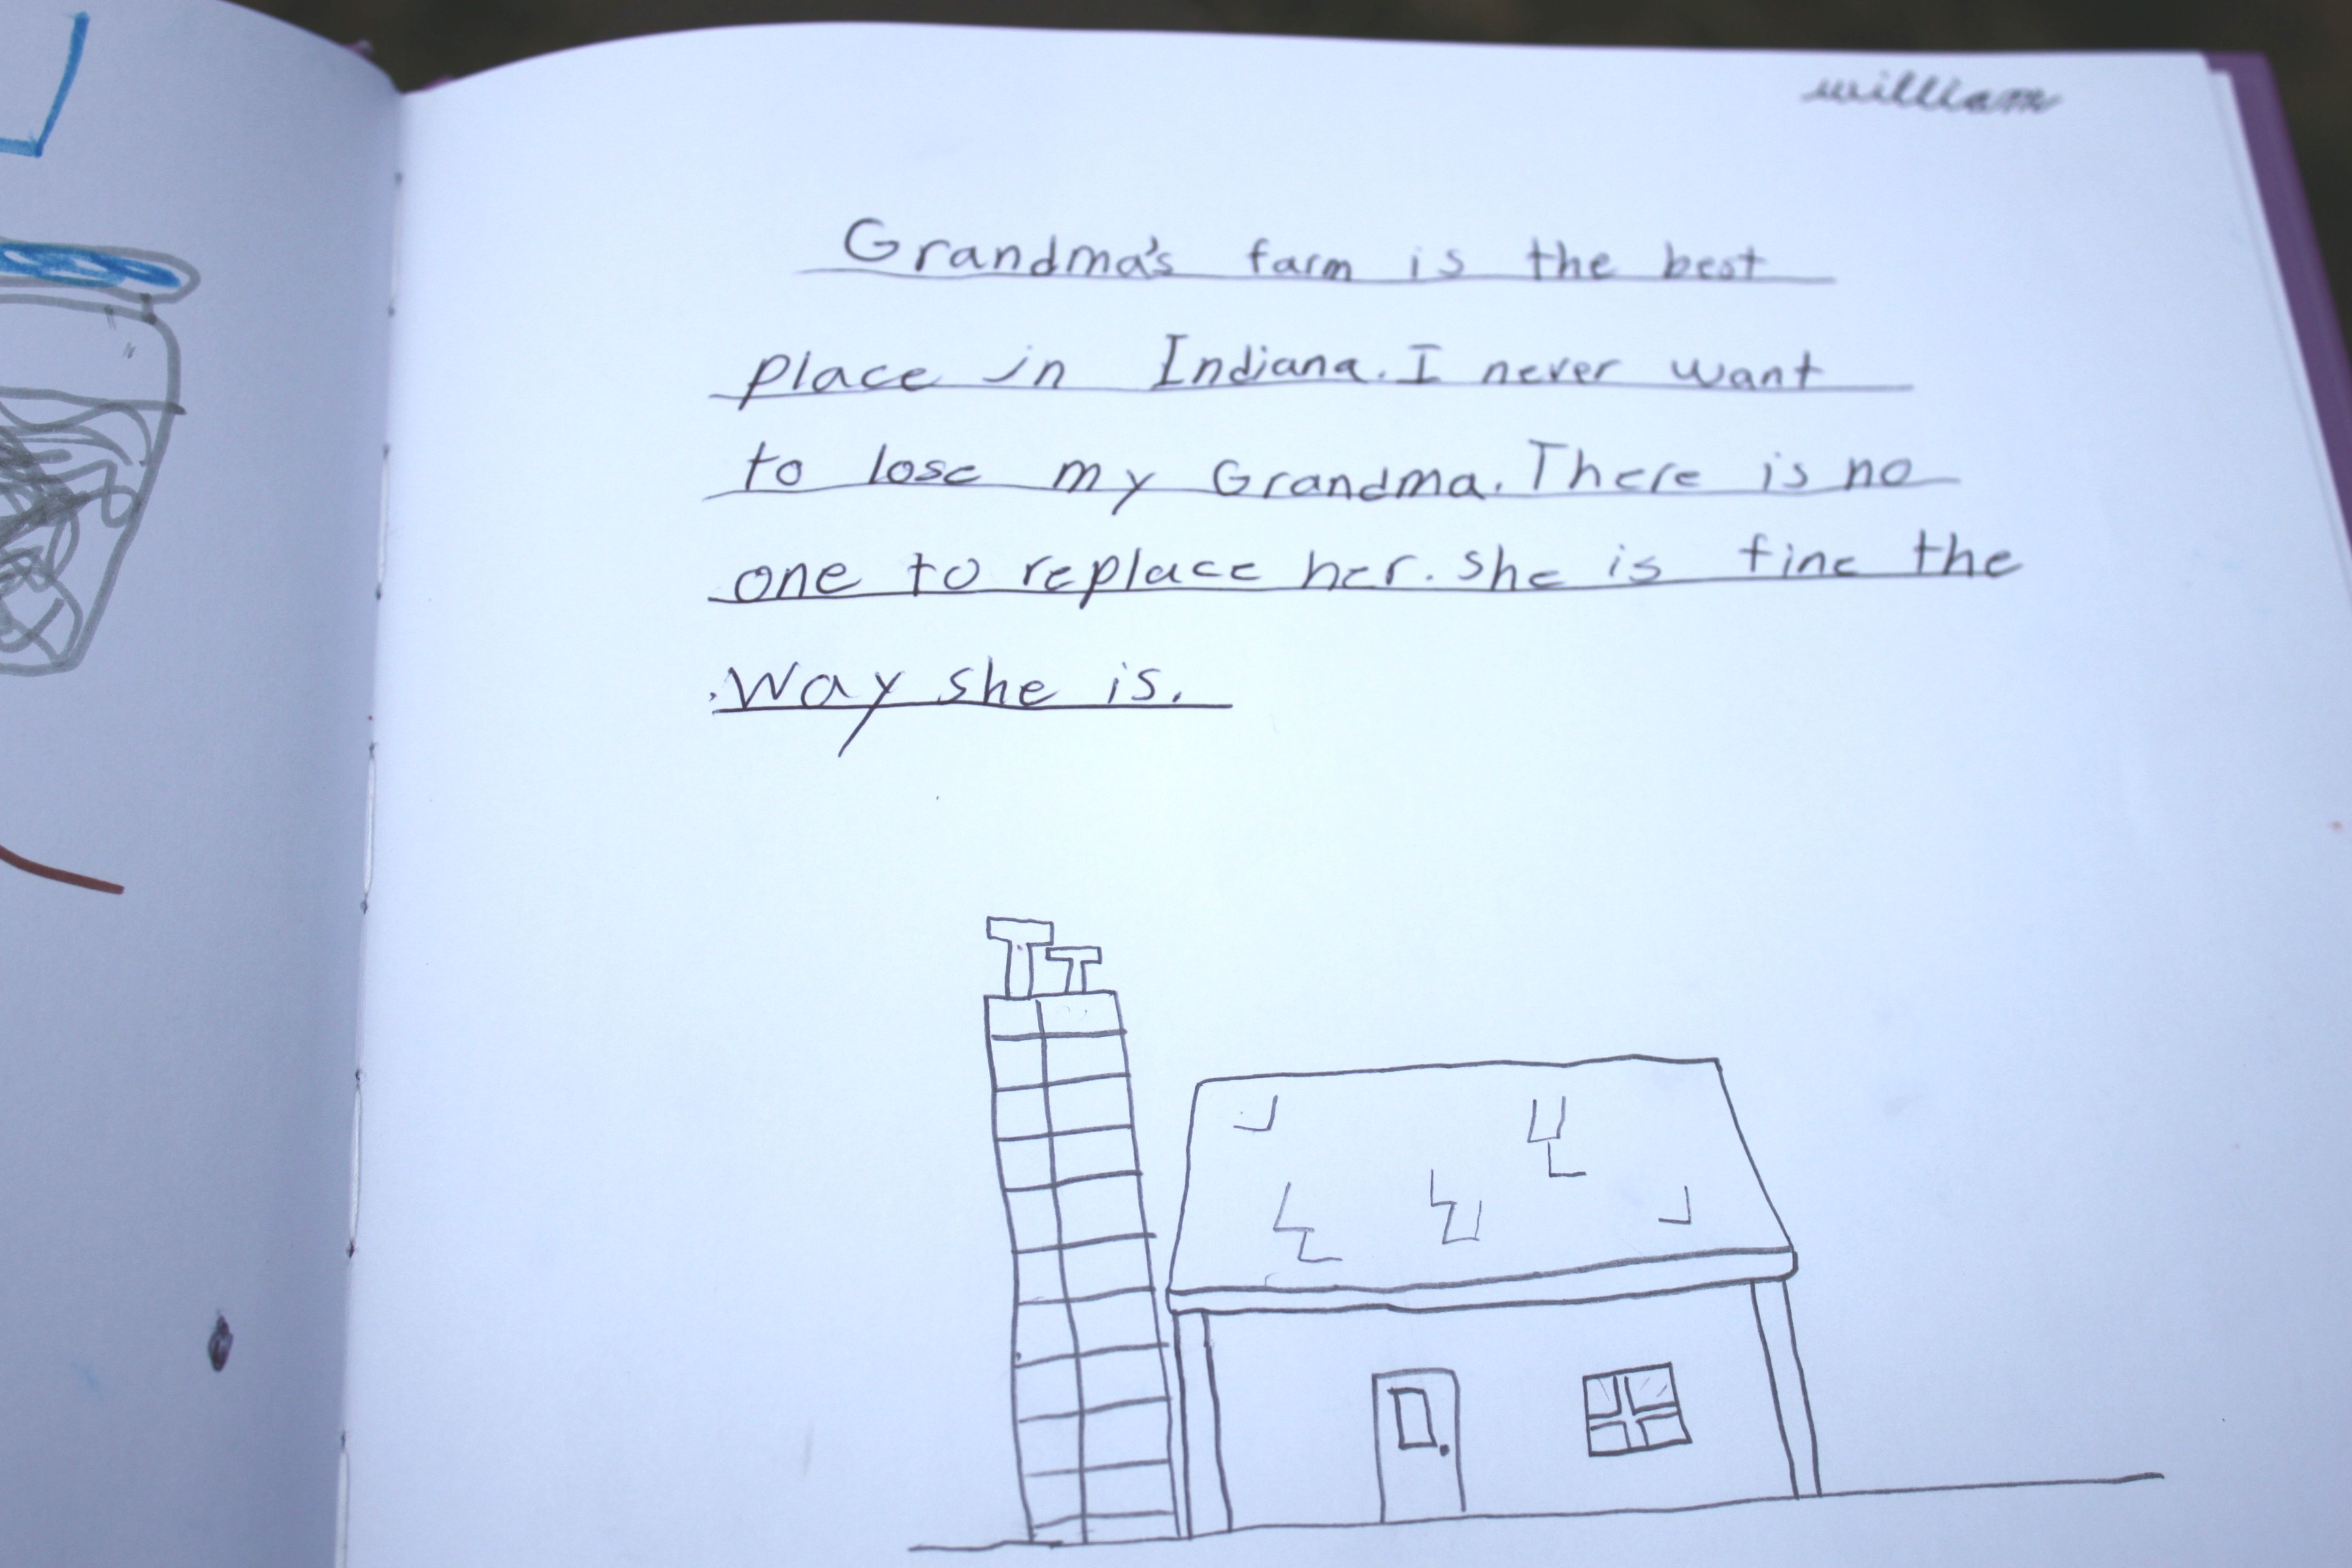 william
Grandma's farm is the best
place in Indiana. I never want
to lose my Grandma. There is no
one to replace her. she is fine the
way she is.